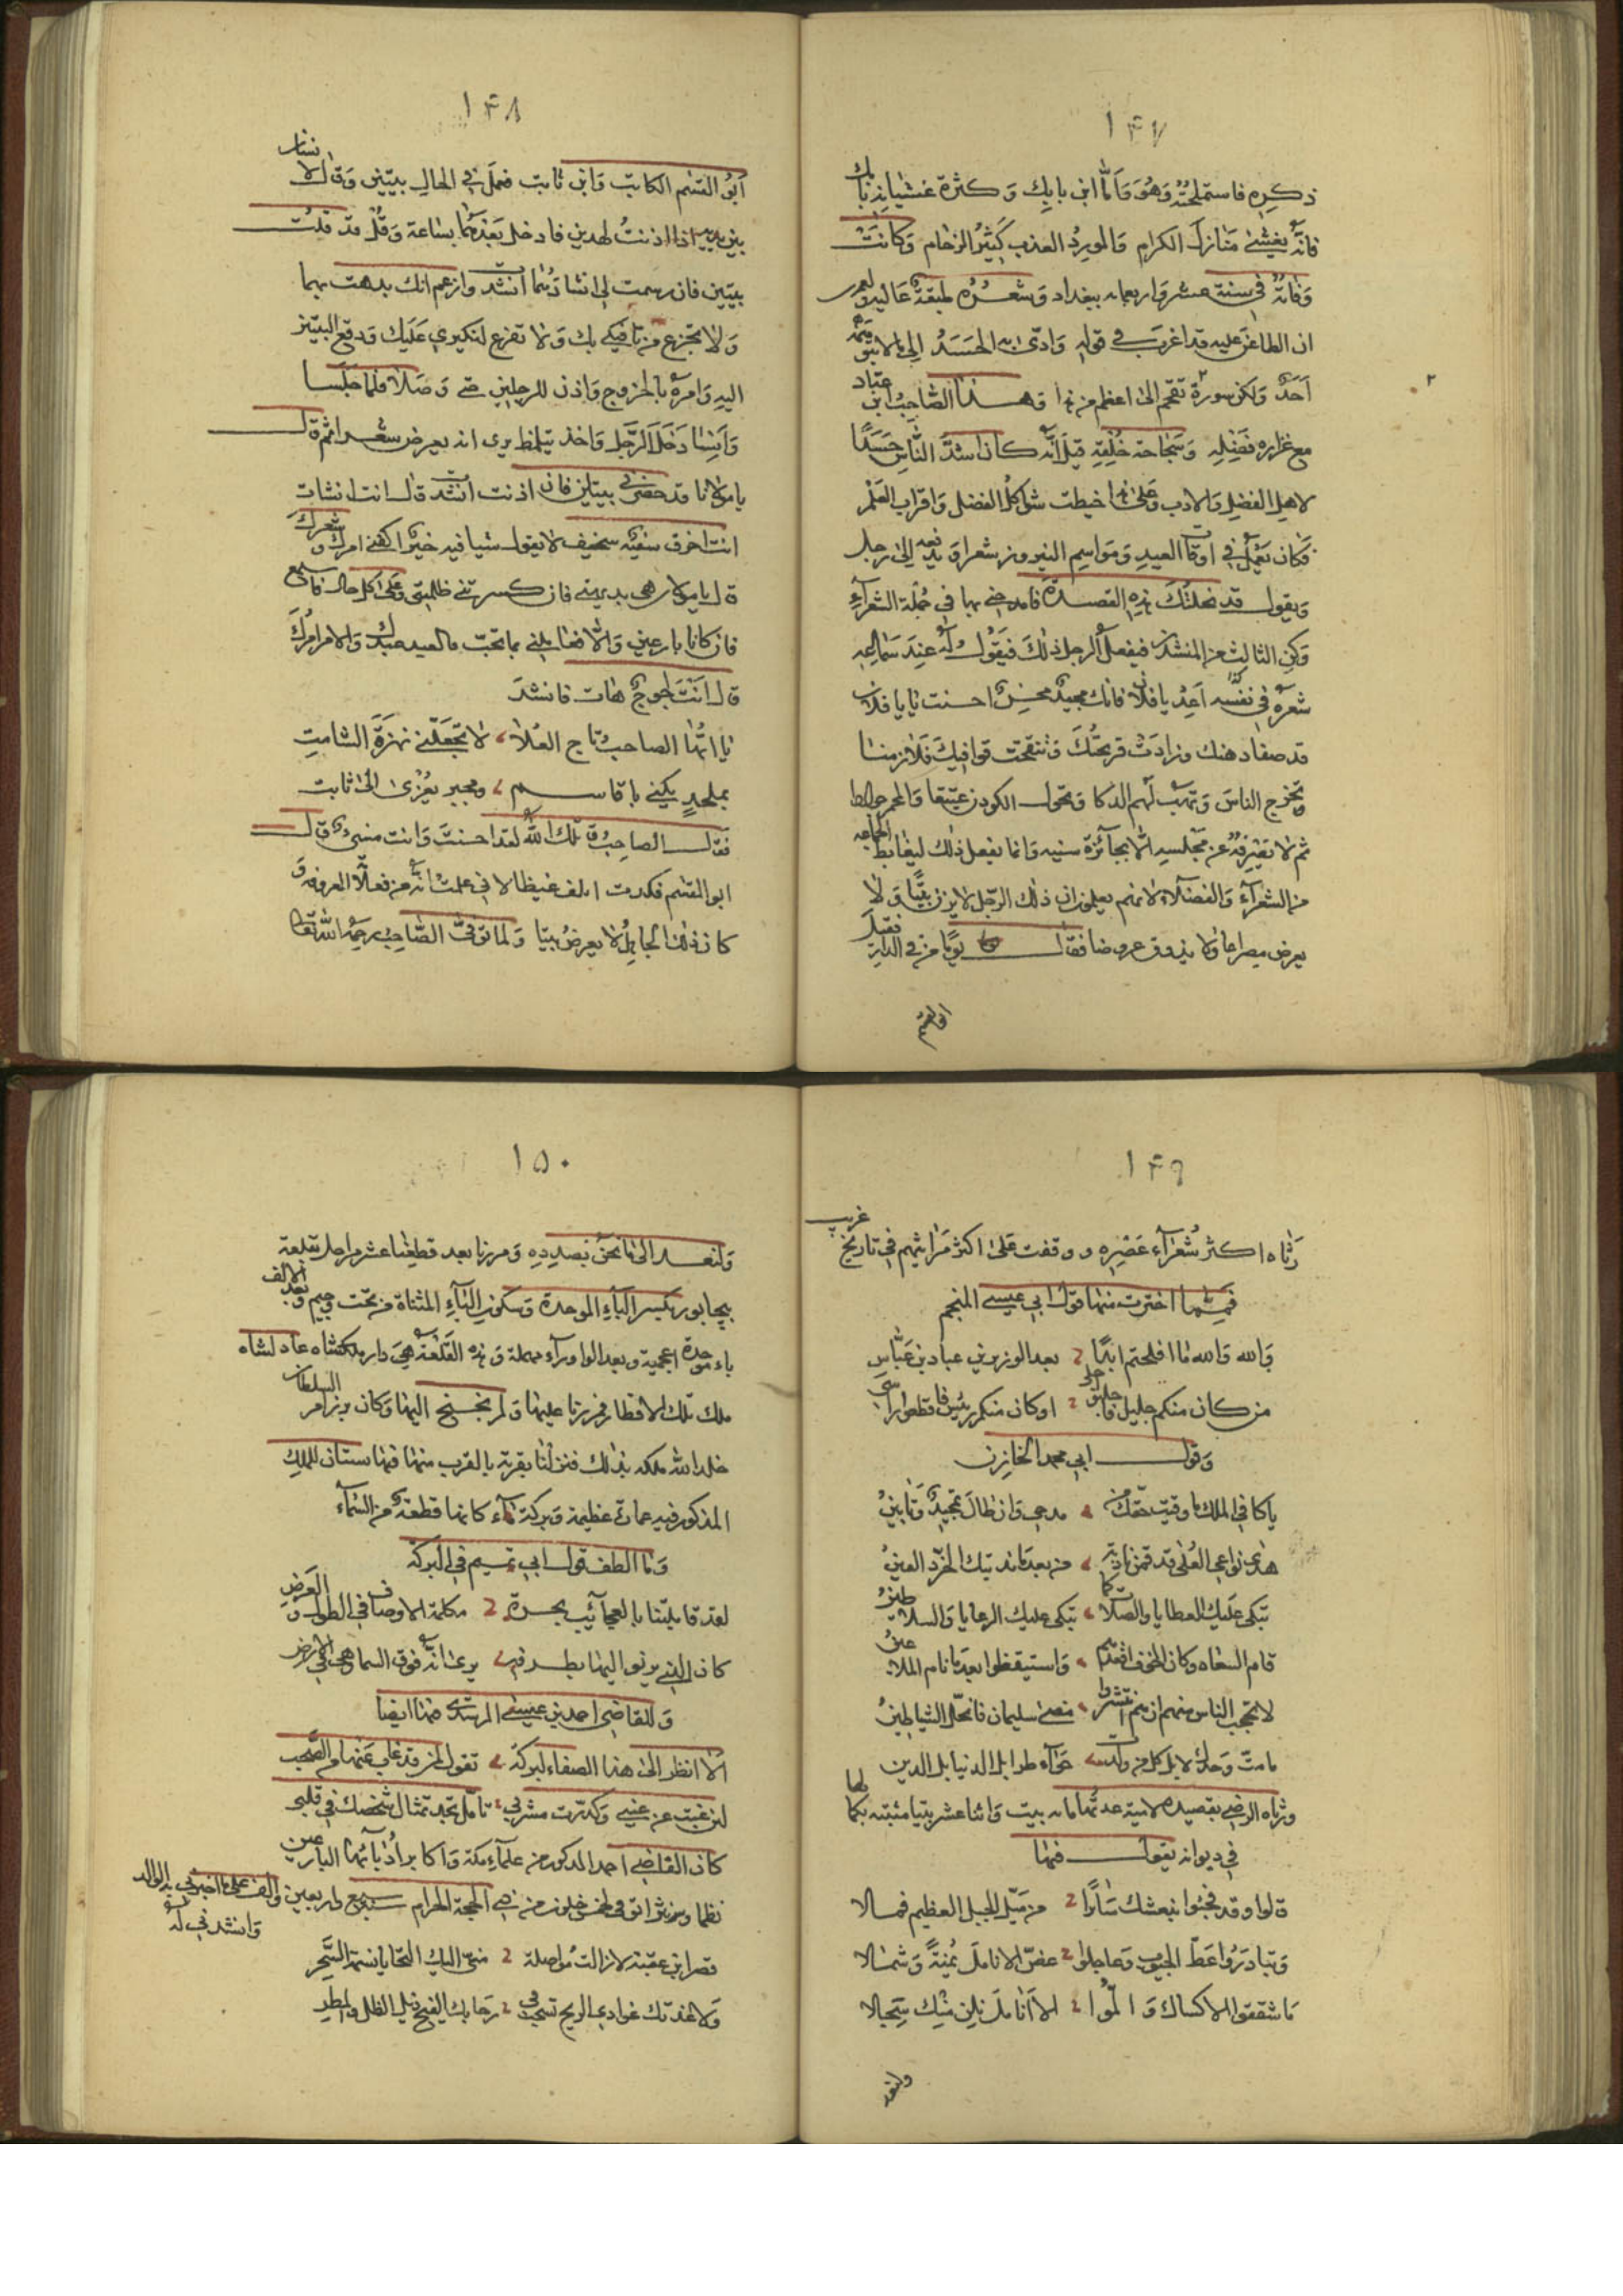 ١٤٧
ذكره فاستملحته وهو وامّا ابن بابك وكثرة غشيانه بابك
فانّه يغشى منازل الكرام والمورد العذب كثير الزحام وكانت
وفاته في سنة عشر واربعمايه ببغداد وشعره طبقة عالية ولعمرى
ان الطاعن عليه قد اغرب في قوله وادّى به الحسد الى ما لا يتوهمه
احد ولكن سورة تقحم الى اعظم من ذا وهذا الصاحب ابن عباد
مع غزاره فضله وسجاحة خلقه قيل انّه كان اشدّ الناس حسدًا
لاهل الفضل والادب وعلى ذا خيطت شواكل الفضل واقراب العلم
فكان يعمل في اوقات العيد ومواسم النيروز شعرا ويدفعه الى رجل
ويقول قد نحلتك هذه القصيدة فامدحني بها في جملة الشعرآء
وكن الثالث من المنشدين فيفعل الرجل ذلك فيقول له عند سماعه
شعره في نفسه اعد يا فلان فانك مجيد محسن احسنت يا يا فلان
قد صفا ذهنك وزادت قريحتك وتنقحت قوافيك فلازمنا
تخرج الناس وتهب لهم الذكا وتحول الكودن عتيقا والمحمر جوالط
ثم لا يصرفه عن مجلسه الا بجآئزة سنيه وانما يفعل ذلك ليغايظ الجماعه
من الشعرآء والفضلآء لانهم يعلمون ان ذلك الرجل لا يزن بيتًا ولا
يعرض مصراعا ولا يذوق عروضا فقال يومًا من في الدار فقيل
ابو القسم
١٤٨
ابو القسم الكاتب وابن ثابت فعمل في الحال بيتين وقال لانسان
بين يديه اذا اذنت لهذين فادخل بعدهما بساعة وقل قد قلت
بيتين فان رسمت لي انشادهما انشدت وازعم انك بدهت بهما
ولا تجزع من تافيكي بك ولا تفزع لنكيري عليك ودفع البيتين
اليه وامره بالخروج واذن للرجلين حتى وصلا فلما جلسا
وانسا دخل الرجل واخذ يتلمظ يرى انه يعرض شعرا ثم قال
يا مولانا قد حضرني بيتان فان اذنت انشدت قال انت انسان
انت اخرق سفيه سخيف لا يقول شيا فيه خير اكفني امرك وشعرك
قال يا مولاى هى بديهتي فان كسرتني ظلمتني وعلى كل حال فاسمع
فان كانا بارعين والّا فعاملني بما تحب فالعبد عبدك والامر امرك
قال انت لجوج هات فانشد
يا ايّها الصاحب تاج العلا لا تجعلنّي نهزة الشامت
بملحد يكنى ابا قاسم ومجبر يعزى الى ثابت
فقال الصاحب قاتلك اللّه لقد احسنت وانت مسىء قال
ابو القسم فكدت اتلف غيظا لاني علمت انّه من فعلاته المعروفه و
كان ذلك الجاهل لا يعرض بيتا ولما توفىّ الصاحب رحمه اللّه تعالى
١٤٩
رثاه اكثر شعرآء عصره ووقفت على اكثر مراثيهم في تاريخ غريب
فممّا اخترت منها قول ابي عيسى المنجم
والله والله ما افلحتم ابدًا بعد الوزير بن عباد بن عبّاس
من كان منكم جليل فاجلبوا اجلي او كان منكم رئيس فاقطعوا راسي
وقول ابي محمد الخازن
يا كافي الملك ما وفيت حقك من مدحي وان طال تمجيد وتابين
هذى نواعي العلى قد قمن نادبة من بعد ما ندبتك الخرّد العين
تبكي عليك العطايا والصلات كما تبكى عليك الرعايا والسلاطين
قام السعاه وكان الخوف اقعدهم واستيقظوا بعد ما نام الملاعين
لا تعجب الناس منهم ان هم انتشروا مضى سليمان فانحلّ الشياطين
مامتّ وحدك لا بل كل من ولدت حوّآء طرا بل الدنيا بل الدين
ورثاه الرضي بقصيده لاميه عدتها مايه بيت واثنا عشر بيتا مثبته بكمالها
في ديوانه يقول فيها
قالوا وقد فجئوا بنعشك سائرًا من ميّل الجبل العظيم فمالا
وتبادروا عطّ الجيوب وعاجلوا عضّ الانامل يُمنةً وشمالا
ما شققوا الا كساك والموا الا انامل نلن منك سجالا
ولنعد
١٥٠
ولنعد الى ما نحن بصدده ومررنا بعد قطعنا عشر مراحل بقلعة
بيجابور بكسر البآء الموحدة وسكون اليآء المثناة من تحت وجيم وبعد الالف
باء موحدة اعجمية وبعد الواو رآء مهملة وهذه القلعة هى دار ملك شاه عادلشاه
ملك تلك الاقطار فمررنا عليها ولم نجنح اليها وكان برز امر السلطان
خلد الله ملكه بذلك فنزلنا بقرية بالقرب منها فيها بستان للملك
المذكور فيه عمارة عظيمة وبركة مآء كانها قطعة من السمآء
وما الطف قول ابي تميم في البركة
لقد قابلتنا بالعجآئب بحرة مكملة الاوصاف في الطول والعرض
كان الذى يرنو اليها بطرفه يرى انّه فوق السما وهى في الارض
وللقاضي احمد بن عيسى المرشدى مهنا ايضا
الا انظر الى هذا الصفا لبركة تقول لمن قد غاب عنها من الصحب
لئن غبت عن عيني وكدرت مشربي تأمّل تجد تمثال شخصك في قلبي
كان القاضي احمد المذكور من علمآء مكة واكابر ادبائها البارعين
نظما ونثرا توفي لخمس خلون من ذي الحجة الحرام سنة سبع واربعين والف على ما اخبرني به الوالد
وانشدني له
قصر ابن عقبة لا زالت مواصلة منى اليك التحايا نسمة السحر
ولا عدتك غوادى الريح تسحب في رحابك الفيح ذيل الظل والمطر